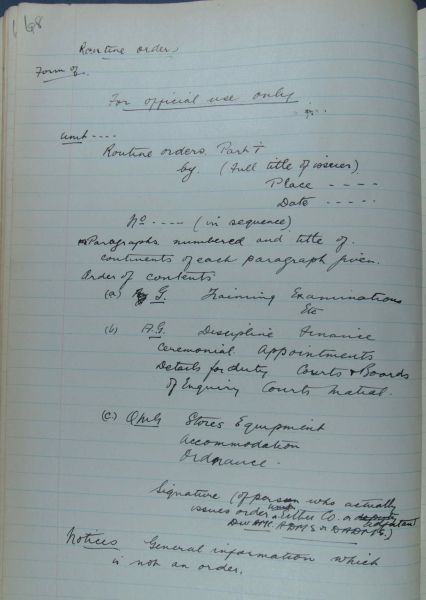 168
Routine orders
Form of.
For official use only
Unit ----
Routine orders. Part I
by. (Full title of issuer)
Place ----
Date -----
No ---- (in sequence)
Paragraphs numbered and title of.
continents of each paragraph given.
Order of contents
(a) G. Training Examinations
Etc
(b) A.G. Discipline Finance
Ceremonial Appointments
Details for duty Courts & Boards
of Enquiry Courts Matial.
(c) QMG Stores Equipment
Accommodation
Ordnance.
Signature (of person who actually
issues order Either Co. or Adjutant
ADMS or DADMS.)
Notices General information which
is not an order.